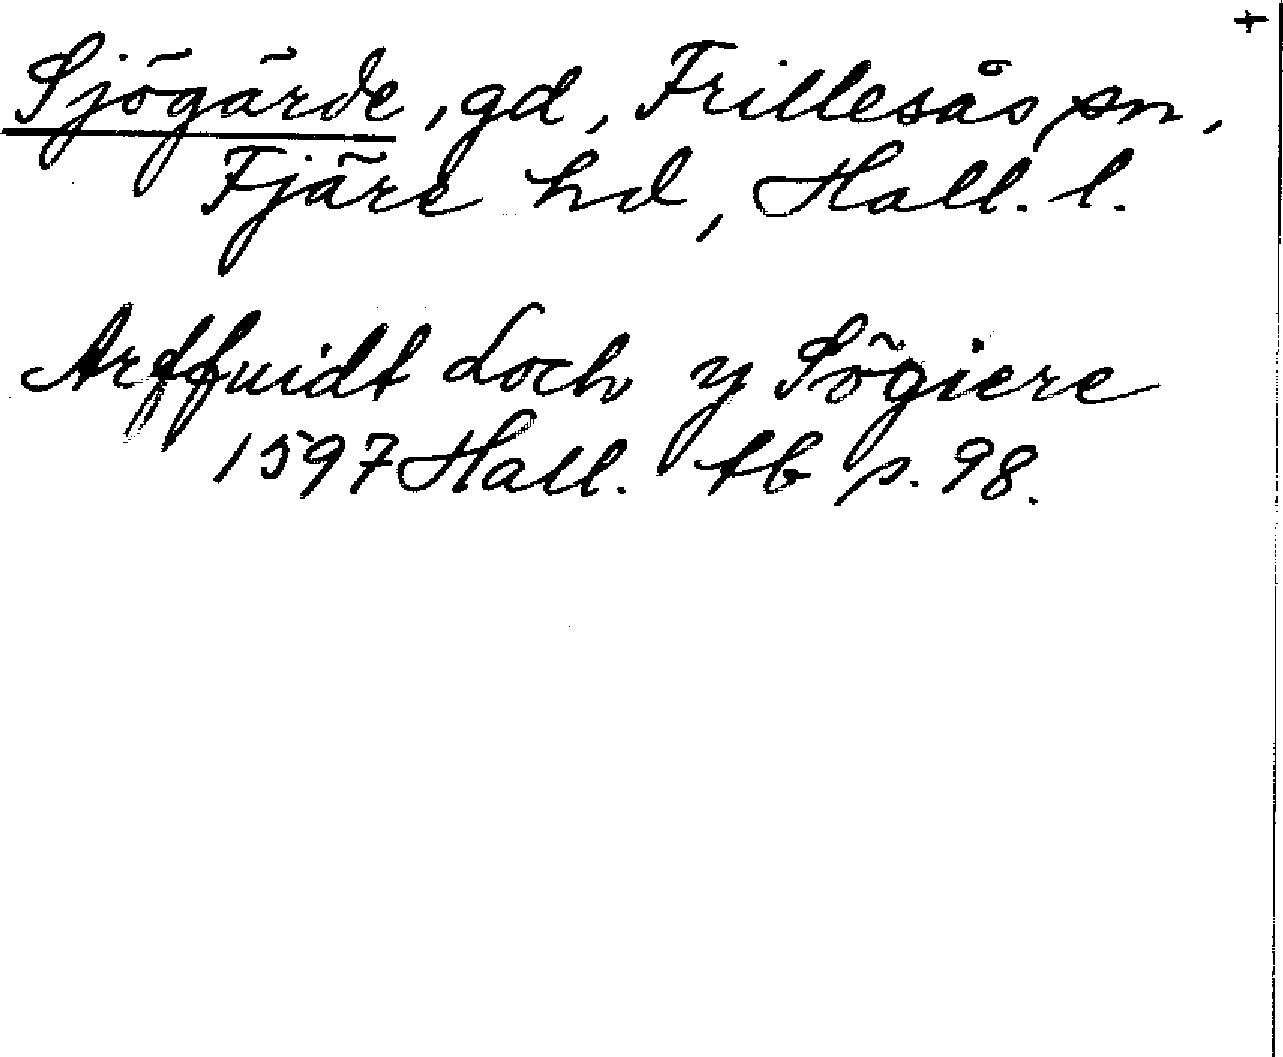 +
Sjögärde, gd, Frillesås sn,
Fjäre hd, Hall. l.
Arffuidt Loch y Sögiere
1597 Hall. tb p. 98.